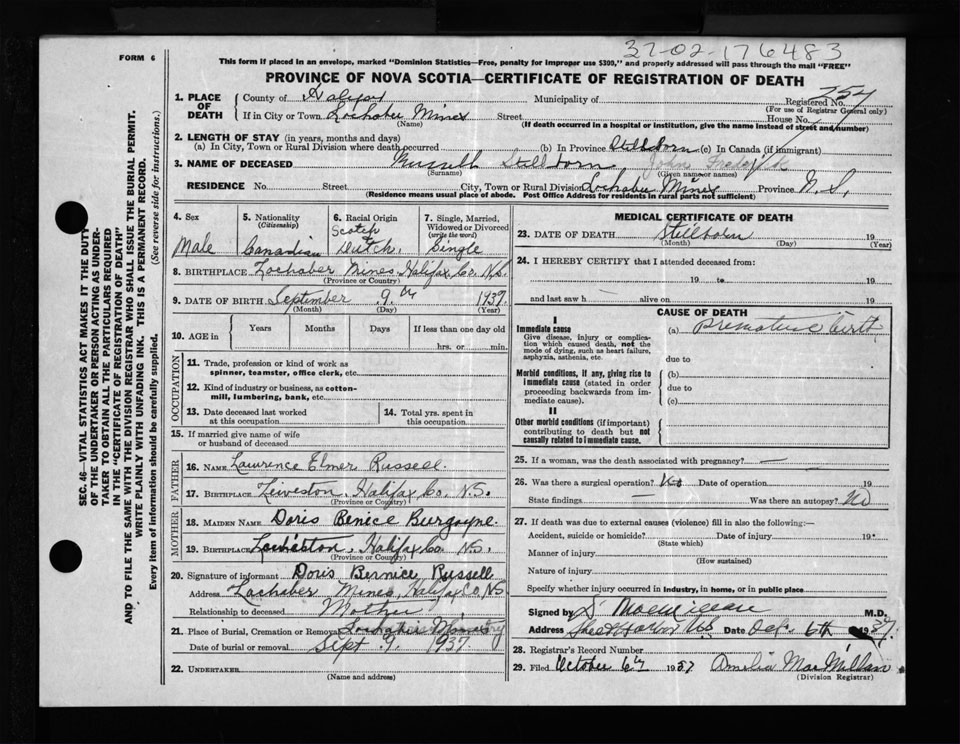 37-02-176483
FORM 6
This form if placed in an envelope, marked "Dominion Statistics—Free, penalty for improper use $300," and properly addressed will pass through the mail "FREE"
PROVINCE OF NOVA SCOTIA—CERTIFICATE OF REGISTRATION OF DEATH
1. PLACE OF DEATH
County of Halifax Municipality of Registered No. 254
(For use of Registrar General only)
If in City or Town Lochaber Mines Street House No.
(Name) (If death occurred in a hospital or institution, give the name instead of street and number)
2. LENGTH OF STAY (in years, months and days)
(a) In City, Town or Rural Division where death occurred (b) In Province Stillborn (c) In Canada (if immigrant)
3. NAME OF DECEASED Russell Stillborn John Frederick
(Surname) (Given name or names)
RESIDENCE No. Street City, Town or Rural Division Lochaber Mines Province N.S.
(Residence means usual place of abode. Post Office Address for residents in rural parts not sufficient)
4. Sex Male
5. Nationality (Citizenship) Canadian
6. Racial Origin Scotch Dutch
7. Single, Married, Widowed or Divorced (write the word) Single
8. BIRTHPLACE Lochaber Mines, Halifax Co. N.S.
(Province or Country)
9. DATE OF BIRTH September 9th 1937.
(Month) (Day) (Year)
10. AGE in Years Months Days If less than one day old
hrs. or min.
OCCUPATION
11. Trade, profession or kind of work as spinner, teamster, office clerk, etc.
12. Kind of industry or business, as cotton-mill, lumbering, bank, etc.
13. Date deceased last worked at this occupation
14. Total yrs. spent in this occupation
15. If married give name of wife or husband of deceased
FATHER
16. NAME Lawrence Elmer Russell.
17. BIRTHPLACE Halifax Co. N.S.
(Province or Country)
MOTHER
18. MAIDEN NAME Doris Benice Burgoyne.
19. BIRTHPLACE Halifax Co. N.S.
(Province or Country)
20. Signature of informant Doris Bernice Russell
Address Lochaber Mines, Halifax Co. N.S
Relationship to deceased Mother
21. Place of Burial, Cremation or Removal
Date of burial or removal Sept. 9. 1937.
22. UNDERTAKER
(Name and address)
MEDICAL CERTIFICATE OF DEATH
23. DATE OF DEATH Stillborn 19
(Month) (Day) (Year)
24. I HEREBY CERTIFY that I attended deceased from:
19 to 19
and last saw h alive on 19
CAUSE OF DEATH
I
Immediate cause
Give disease, injury or complication which caused death, not the mode of dying, such as heart failure, asphyxia, asthenia, etc.
(a) premature birth
due to
Morbid conditions, if any, giving rise to immediate cause (stated in order proceeding backwards from immediate cause).
(b)
due to
(c)
II
Other morbid conditions (if important) contributing to death but not causally related to immediate cause.
25. If a woman, was the death associated with pregnancy? —
26. Was there a surgical operation? No Date of operation 19
State findings — Was there an autopsy? No
27. If death was due to external causes (violence) fill in also the following:—
Accident, suicide or homicide? Date of injury 19
(State which)
Manner of injury
(How sustained)
Nature of injury
Specify whether injury occurred in industry, in home, or in public place
Signed by M.D.
Address Date Oct. 6th 1937.
28. Registrar's Record Number
29. Filed October 6th 1937 Amelia MacMillan
(Division Registrar)
SEC. 46—VITAL STATISTICS ACT MAKES IT THE DUTY
OF THE UNDERTAKER OR PERSON ACTING AS UNDER-
TAKER TO OBTAIN ALL THE PARTICULARS REQUIRED
IN THE "CERTIFICATE OF REGISTRATION OF DEATH"
AND TO FILE THE SAME WITH THE DIVISION REGISTRAR WHO SHALL ISSUE THE BURIAL PERMIT.
WRITE PLAINLY WITH UNFADING INK. THIS IS A PERMANENT RECORD.
Every item of information should be carefully supplied. (See reverse side for instructions.)